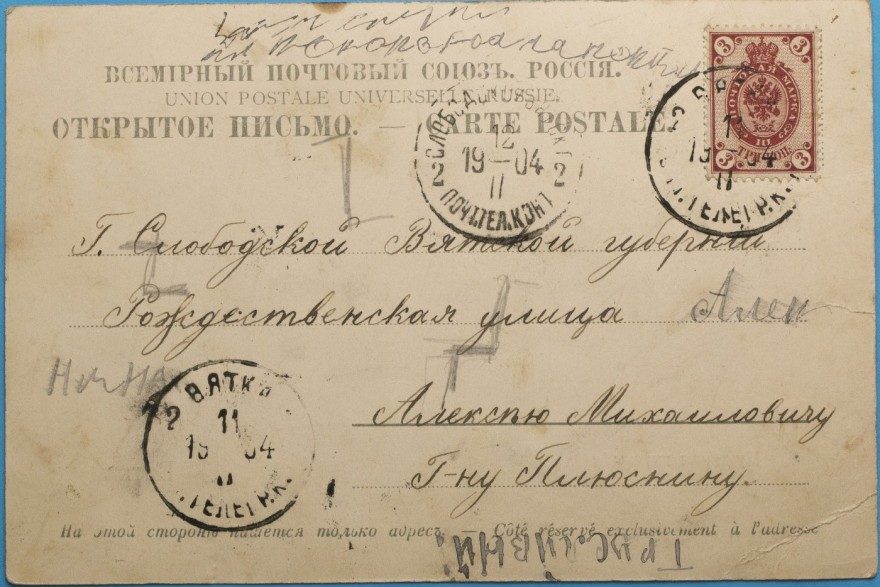 ВСЕМІРНЫЙ ПОЧТОВЫЙ СОЮЗЪ. РОССІЯ.
UNION POSTALE UNIVERSELLE. RUSSIE.
ОТКРЫТОЕ ПИСЬМО. — CARTE POSTALE.
3 3
ПОЧТОВАЯ МАРКА
3 3
12
19—04
11
2 2
ПОЧ.ТЕЛ.КОНТ
11
19 04
11
.ТЕЛЕГР.К.
Г. Слободской Вятской губерніи
Рождественская улица Алек
2 ВЯТКА
11
19 04
11
.ТЕЛЕГР.К.
Алексѣю Михаиловичу
Г-ну Плюснину.
На этой сторонѣ пишется только адресъ. — Côté réservé exclusivement à l'adresse